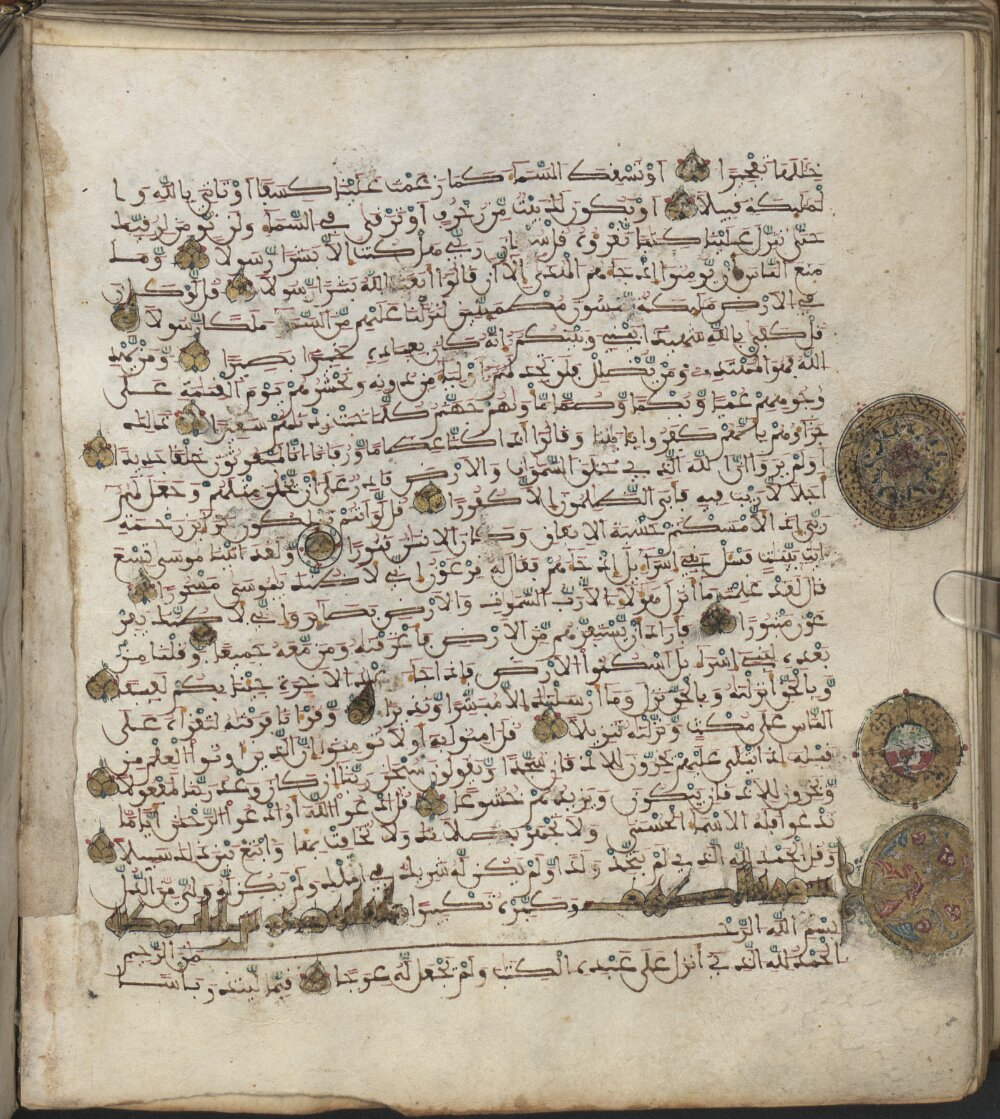 خلالها تفجيرا او تسقط السماء كما زعمت علينا كسفا او تاتي بالله وا
لمليكة قبيلا او يكون لك بيت من زخرف او ترقى في السماء ولن نومن لرقيك
حتى تنزل علينا كتبا نقروه قل سبحان ربي هل كنت الا بشرا رسولا وما
منع الناس ان يومنوا اذ جاهم الهدى الا ان قالوا ابعث الله بشرا رسولا قل لو كان
في الارض مليكة يمشون مطمينين لنزلنا عليهم من السماء ملكا رسولا
قل كفى بالله شهيدا بيني وبينكم انه كان بعباده خبيرا بصيرا ومن يهد
الله فهو المهتدي ومن يضلل فلن تجد لهم اوليا من دونه ونحشرهم يوم القيمة على
وجوههم عميا وبكما وصما ماويهم جهنم كلما خبت زدنهم سعيرا ذلك
جزاوهم بانهم كفروا بايتنا وقالوا اذا كنا عظما ورفاتا انا لمبعوثون خلقا جديدا
اولم يروا ان الله الذي خلق السموت والارض قادر على ان يخلق مثلهم وجعل لهم
اجلا لا ريب فيه فابى الظلمون الا كفورا قل لو انتم تملكون خزاين رحمة
ربي اذا لامسكتم خشية الانفاق وكان الانسن قتورا ولقد اتينا موسى تسع
ايت بينت فسل بني اسرايل اذ جاهم فقال له فرعون اني لاظنك يموسى مسحورا
قال لقد علمت ما انزل هولا الا رب السموت والارض بصاير واني لاظنك يفر
عون مثبورا فاراد ان يستفزهم من الارض فاغرقنه ومن معه جميعا وقلنا من
بعده لبني اسرايل اسكنوا الارض فاذا جا وعد الاخرة جينا بكم لفيفا
وبالحق انزلنه وبالحق نزل وما ارسلنك الا مبشرا ونذيرا وقرانا فرقنه لتقراه على
الناس على مكث ونزلنه تنزيلا قل امنوا به او لا تومنوا ان الذين اوتوا العلم من
قبله اذا يتلى عليهم يخرون للاذقان سجدا ويقولون سبحن ربنا ان كان وعد ربنا لمفعولا
ويخرون للاذقان يبكون ويزيدهم خشوعا قل ادعوا الله او ادعوا الرحمن اياما
تدعوا فله الاسما الحسنى ولا تجهر بصلاتك ولا تخافت بها وابتغ بين ذلك سبيلا
وقل الحمد لله الذي لم يتخذ ولدا ولم يكن له شريك في الملك ولم يكن له ولي من الذل
وكبره تكبيرا
بسم الله الرحـ
ـمن الرحيم
الحمد لله الذي انزل على عبده الكتب ولم يجعل له عوجا قيما لينذر باسا